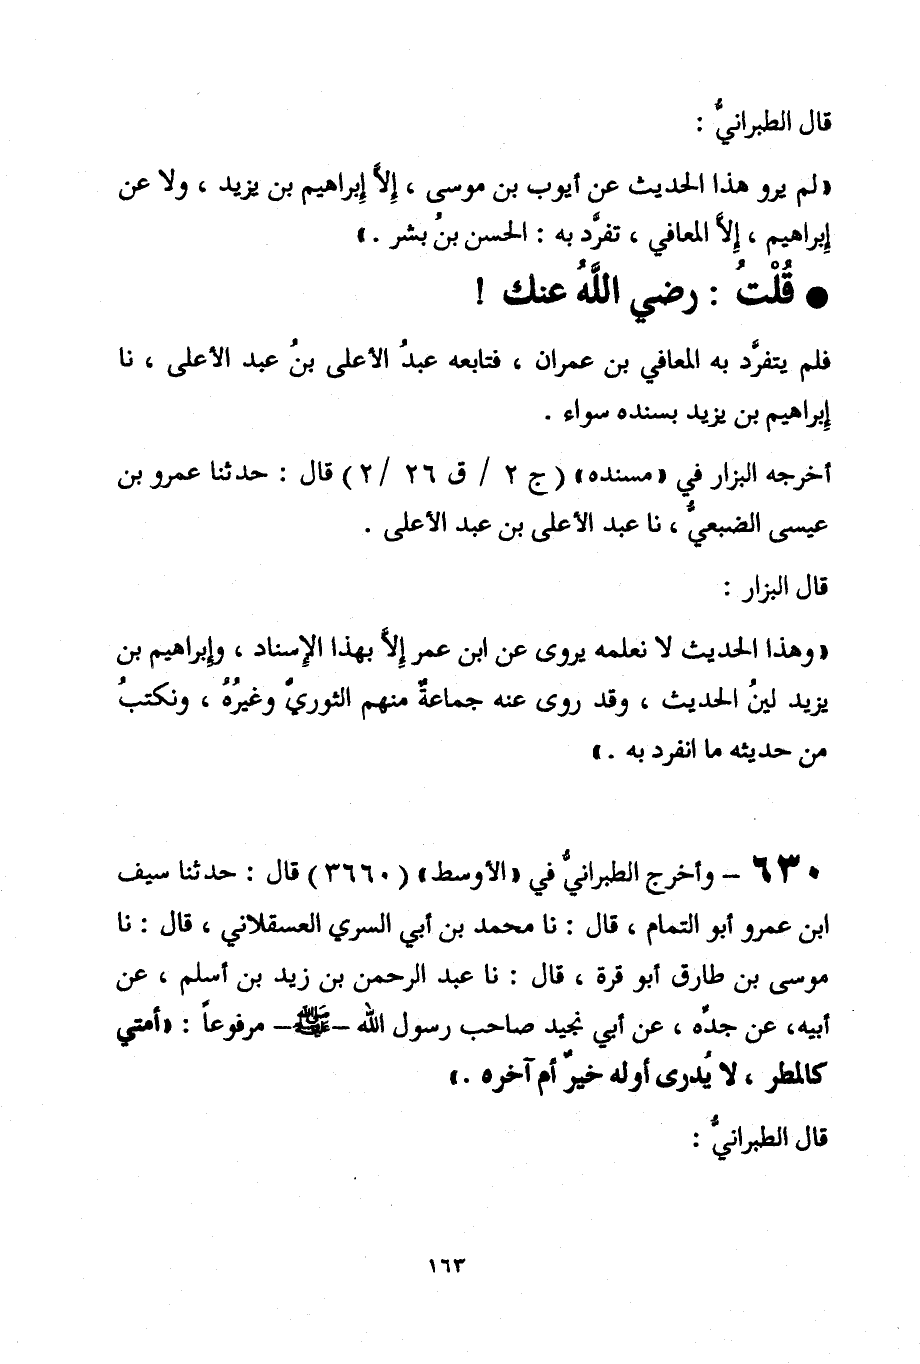 قال الطبرانيُّ :
«لم يرو هذا الحديث عن أيوب بن موسى ، إلاَّ إبراهيم بن يزيد ، ولا عن
إبراهيم ، إلاَّ المعافي ، تفرَّد به : الحسن بنُ بشر .»
● قُلْتُ : رضي اللَّهُ عنك !
فلم يتفرَّد به المعافي بن عمران ، فتابعه عبدُ الأعلى بنُ عبد الأعلى ، نا
إبراهيم بن يزيد بسنده سواء .
أخرجه البزار في «مسنده» (ج ٢ / ق ٢٦ /٢) قال : حدثنا عمرو بن
عيسى الضبعيُّ ، نا عبد الأعلى بن عبد الأعلى .
قال البزار :
«وهذا الحديث لا نعلمه يروى عن ابن عمر إلاَّ بهذا الإسناد ، وإبراهيم بن
يزيد لينُ الحديث ، وقد روى عنه جماعةٌ منهم الثوريُّ وغيرُهُ ، ونكتبُ
من حديثه ما انفرد به .»
٦٣٠ – وأخرج الطبرانيُّ في «الأوسط» (٣٦٦٠) قال : حدثنا سيف
ابن عمرو أبو التمام ، قال : نا محمد بن أبي السري العسقلاني ، قال : نا
موسى بن طارق أبو قرة ، قال : نا عبد الرحمن بن زيد بن أسلم ، عن
أبيه، عن جدِّه ، عن أبي نجيد صاحب رسول الله –ﷺ– مرفوعاً : «أمتي
كالمطر ، لا يُدرى أوله خيرٌ أم آخره .»
قال الطبرانيُّ :
١٦٣